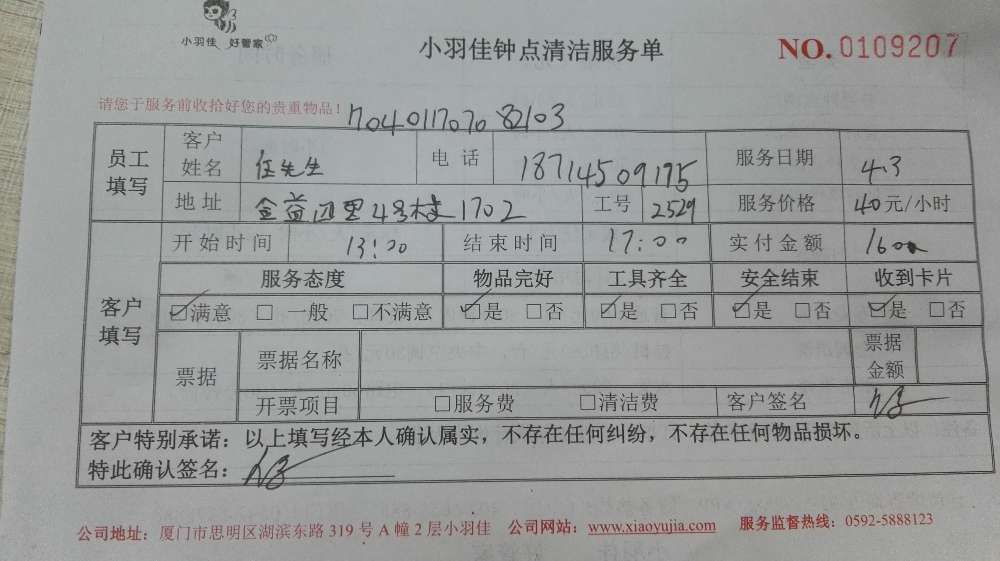 小羽佳 好管家
小羽佳钟点清洁服务单 NO. 0109207
请您于服务前收拾好您的贵重物品！ 17040117070 82103
员工填写 客户姓名 任先生 电话 18714509175 服务日期 4.3
地址 金益四里4号楼1702 工号 2529 服务价格 40元/小时
客户填写 开始时间 13:00 结束时间 17:00 实付金额 160
服务态度 物品完好 工具齐全 安全结束 收到卡片
☑满意 □一般 □不满意 ☑是 □否 ☑是 □否 ☑是 □否 ☑是 □否
票据 票据名称 票据金额
开票项目 □服务费 □清洁费 客户签名
客户特别承诺：以上填写经本人确认属实，不存在任何纠纷，不存在任何物品损坏。
特此确认签名：
公司地址：厦门市思明区湖滨东路 319 号 A 幢 2 层小羽佳 公司网站：www.xiaoyujia.com 服务监督热线：0592-5888123